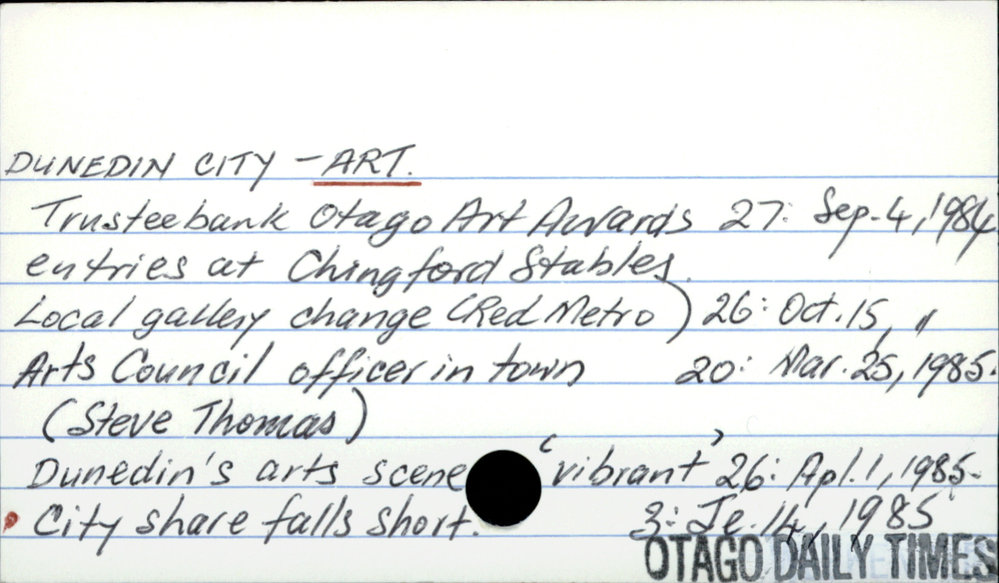 DUNEDIN CITY – ART.
Trusteebank Otago Art Awards 27: Sep. 4, 1984
entries at Chingford Stables.
Local gallery change (Red Metro) 26: Oct. 15, "
Arts Council officer in town 20: Mar. 25, 1985.
(Steve Thomas)
Dunedin's arts scene 'vibrant' 26: Apl. 1, 1985.
City share falls short. 3: Je. 14, 1985
OTAGO DAILY TIMES